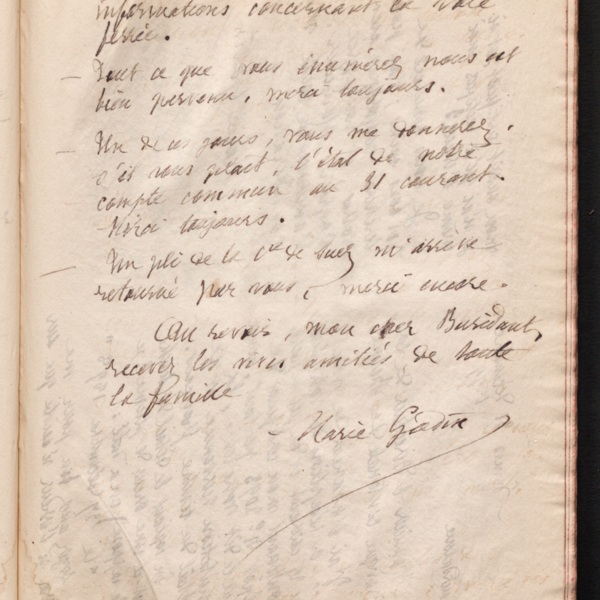 informations concernant la voie
ferrée.
— Tout ce que vous énumérez nous est
bien parvenu, merci toujours.
— Un de ces jours, vous me donnerez,
s'il vous plait, l'état de notre
compte commun au 31 courant.
Merci toujours.
— Un pli de la Cie de Suez m'arrive
retourné par vous, merci encore.
Au revoir, mon cher Buridant,
recevez les vives amitiés de toute
la famille
Marie Godin